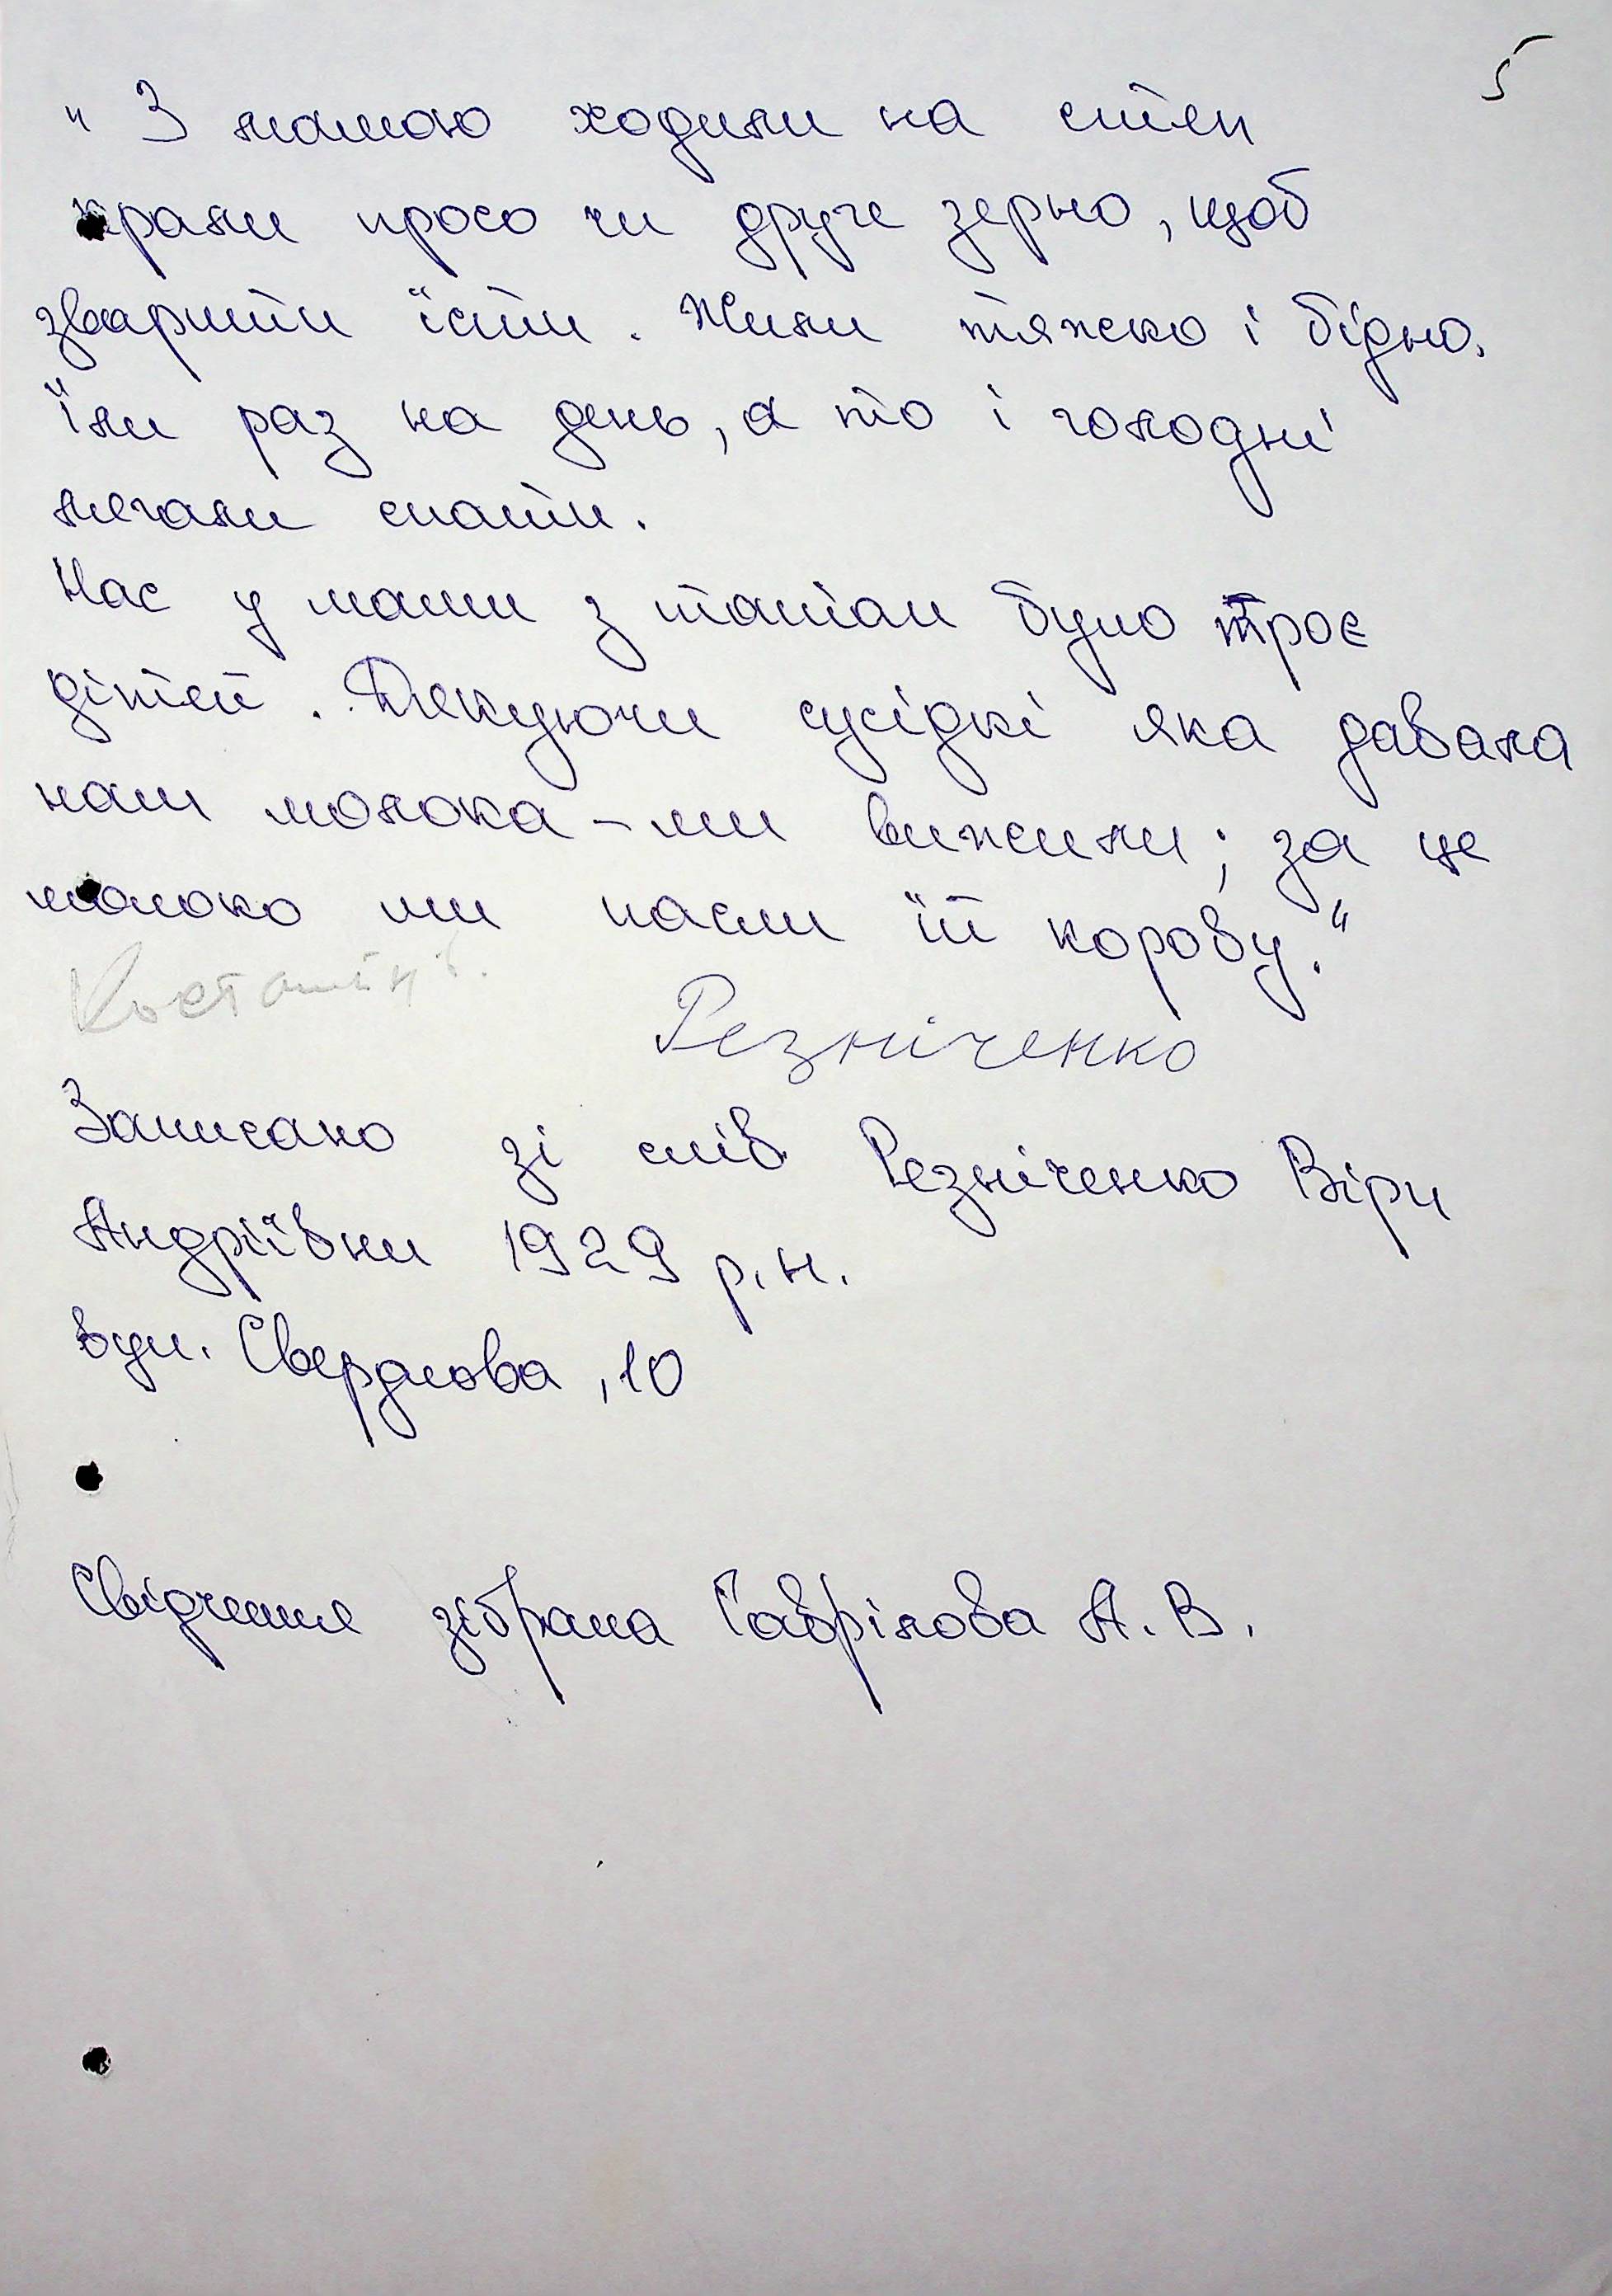 5
" З мамою ходили на степ
крали просо чи друге зерно, щоб
зварити їсти. Жили тяжко і бідно.
Їли раз на день, а то і голодні
лягали спати.
Нас у мами з татом було троє
дітей. Дякуючи сусідкі яка давала
нам молока - ми вижили; за це
молоко ми пасли їй корову."
Резніченко
Записано зі слів Резніченко Віри
Андріївни 1929 р.н.
вул. Свердлова, 10
Свідчення зібрала Гаврілова А. В.